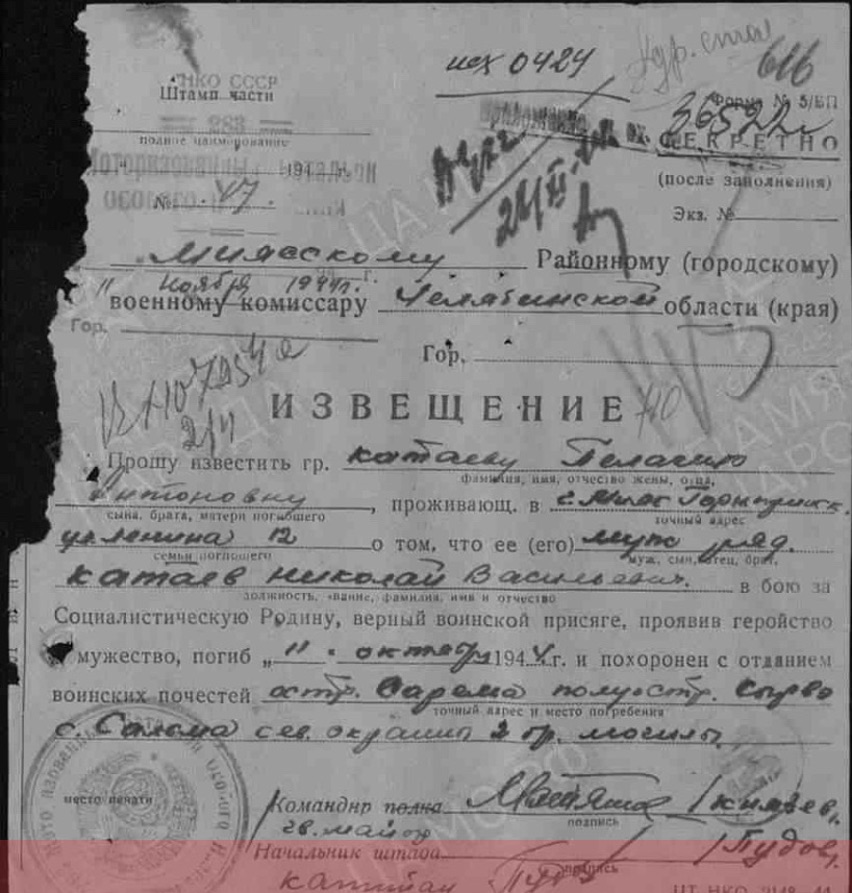 исх 0424
616
НКО СССР
Штамп части
Форма № 5/БП
283
36522с
СЕКРЕТНО
полное наименование
194 г.
(после заполнения)
№ 47.
Экз. №
Миасскому Районному (городскому)
"11" Ноября 1944 г.
военному комиссару Челябинской области (края)
Гор.
Гор.
ИЗВЕЩЕНИЕ
Прошу известить гр. Катаеву Пелагию
фамилия, имя, отчество жены, отца,
Антоновну, проживающ. в г. Миас
сына, брата, матери погибшего
точный адрес
ул. Ленина 12 о том, что ее (его) муж ряд.
семьи погибшего
муж, сын, отец, брат,
Катаев Николай Васильевич. в бою за
должность, звание, фамилия, имя и отчество
Социалистическую Родину, верный воинской присяге, проявив геройство
мужество, погиб „11" октября 1944 г. и похоронен с отданием
воинских почестей остр. Сарема полуостр. Сырве
точный адрес и место погребения
с. Сальма сев. окраина 2 бр. могилы.
место печати
Командир полка
подпись
гв. майор
Начальник штаба /Пудов/
подпись
капитан